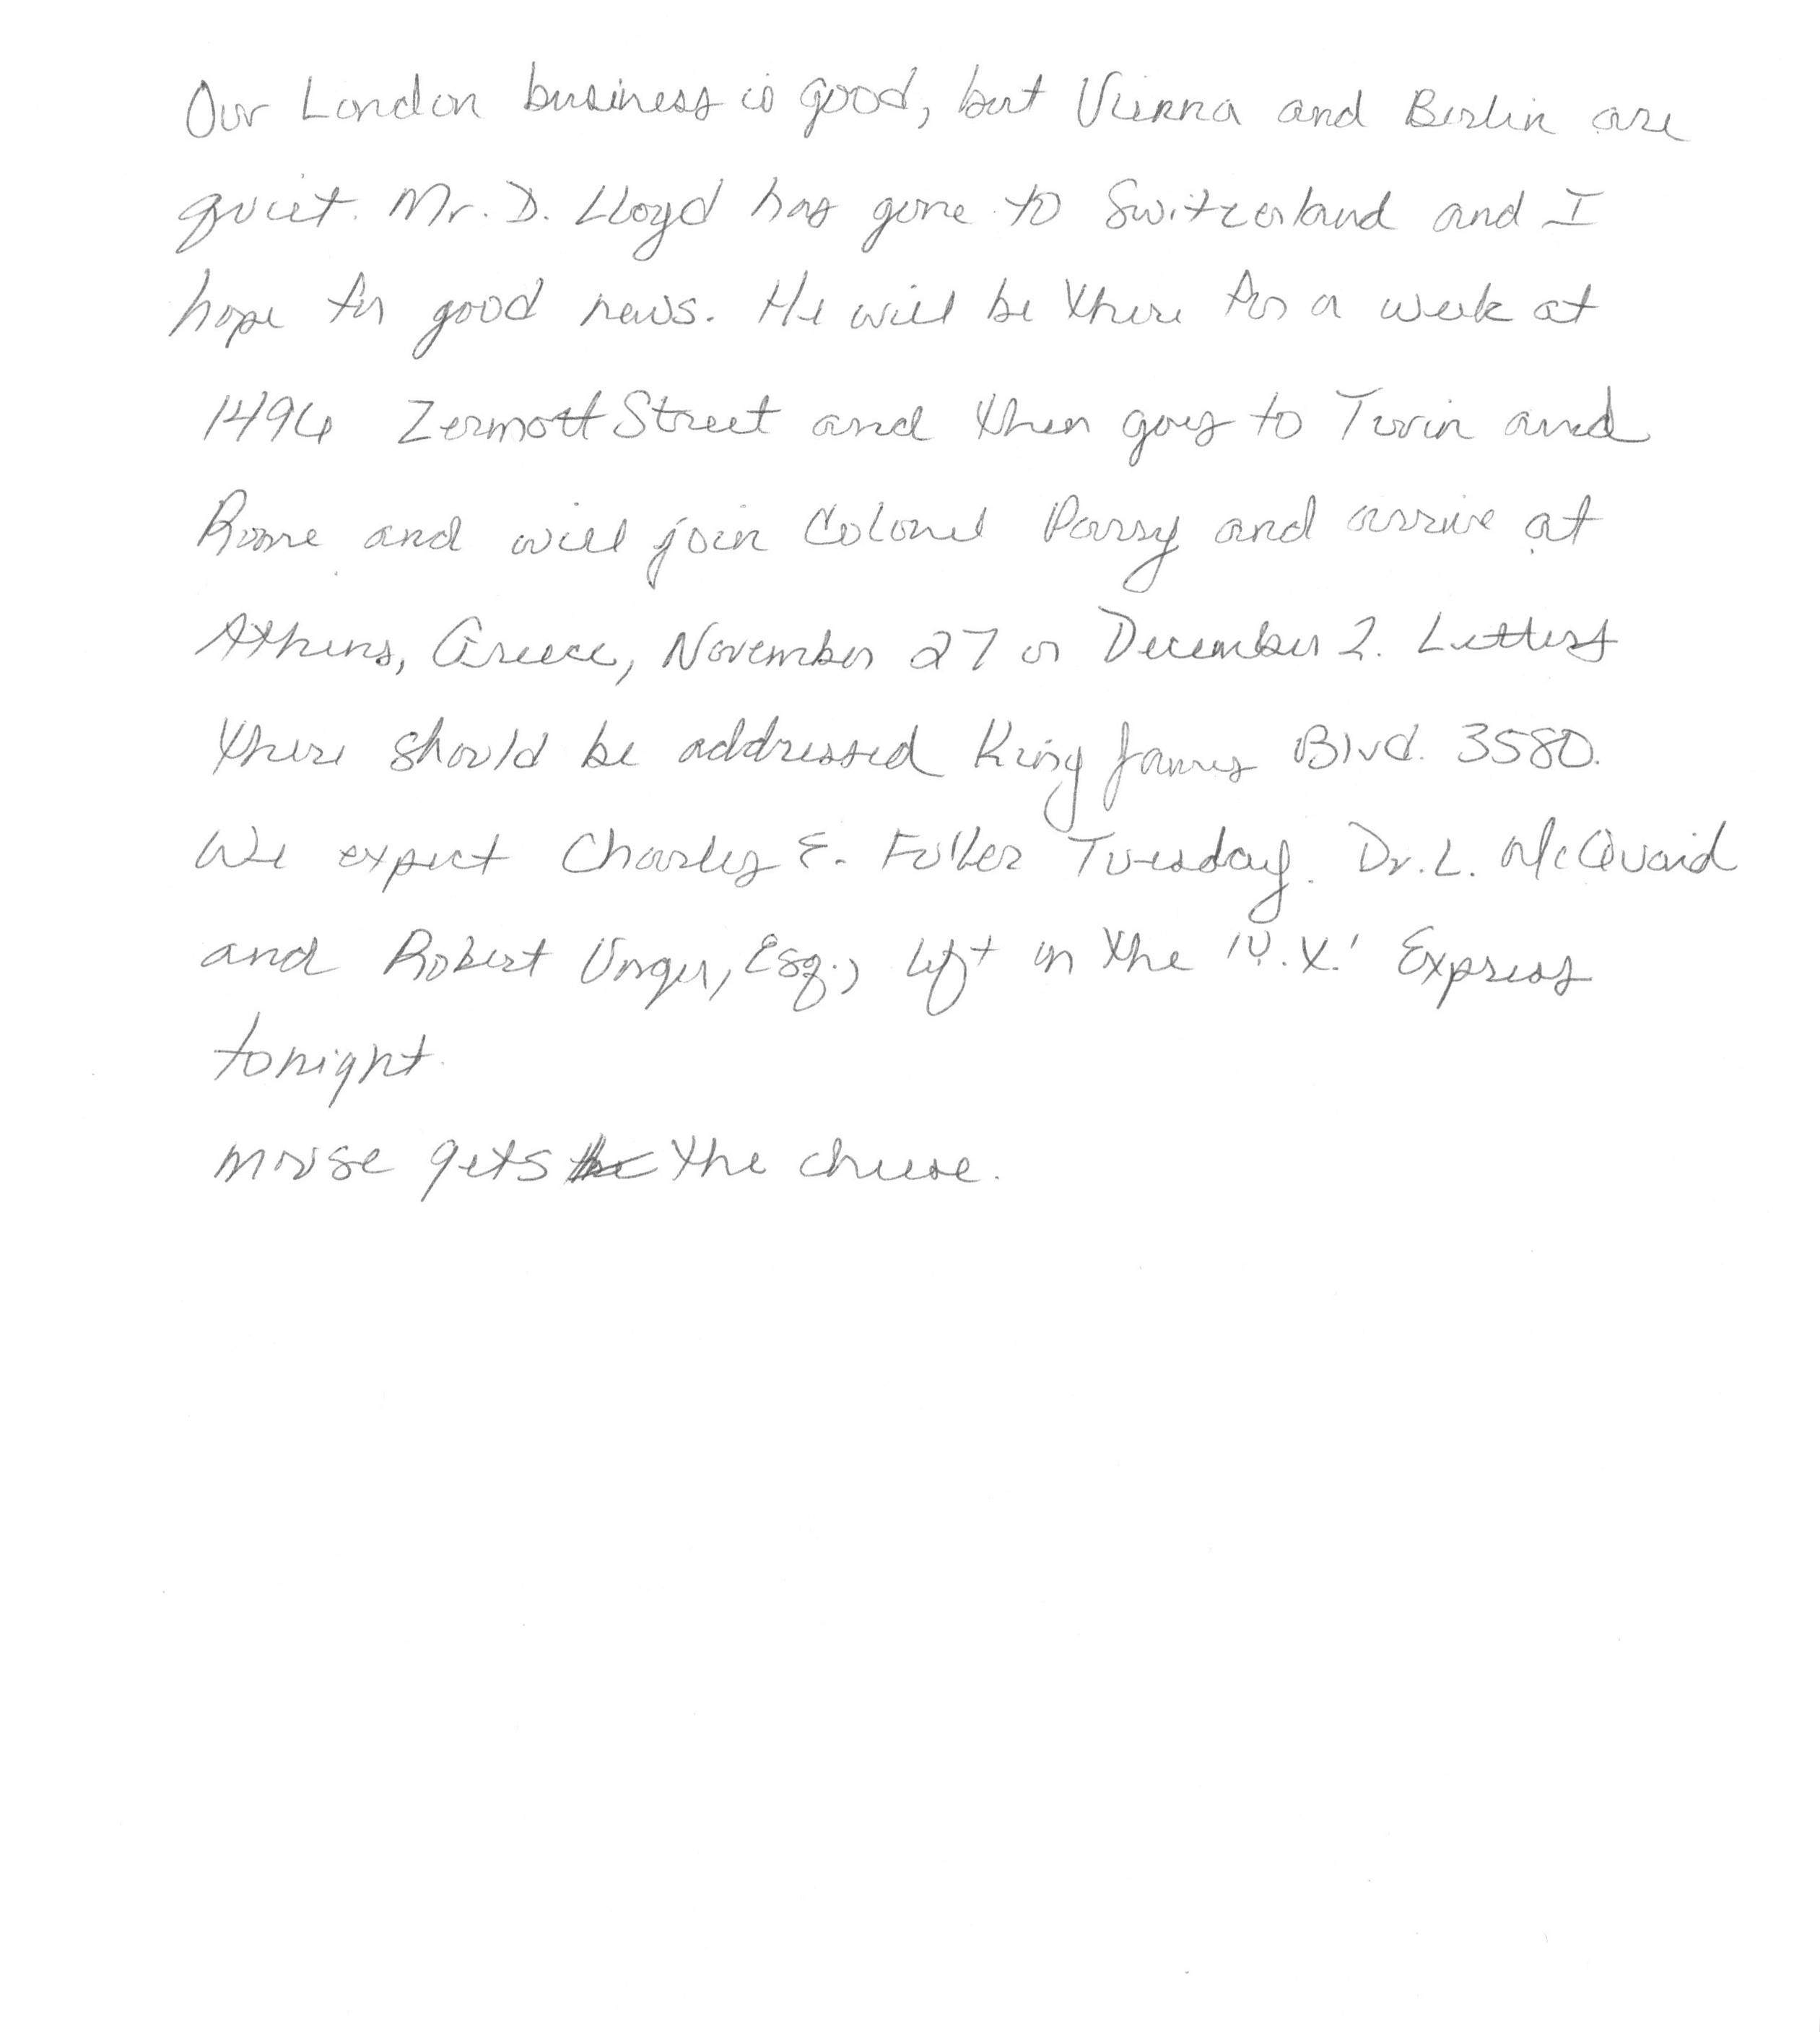 Our London business is good, but Vienna and Berlin are
quiet. Mr. D. Lloyd has gone to Switzerland and I
hope for good news. He will be there for a week at
1496 Zermott Street and then goes to Turin and
Rome and will join Colonel Parry and arrive at
Athens, Greece, November 27 or December 2. Letters
there should be addressed King James Blvd. 3580.
We expect Charles E. Fuller Tuesday. Dr. L. McQuaid
and Robert Unger, Esq., left on the 'V.X.' Express
tonight.
mouse gets the cheese.